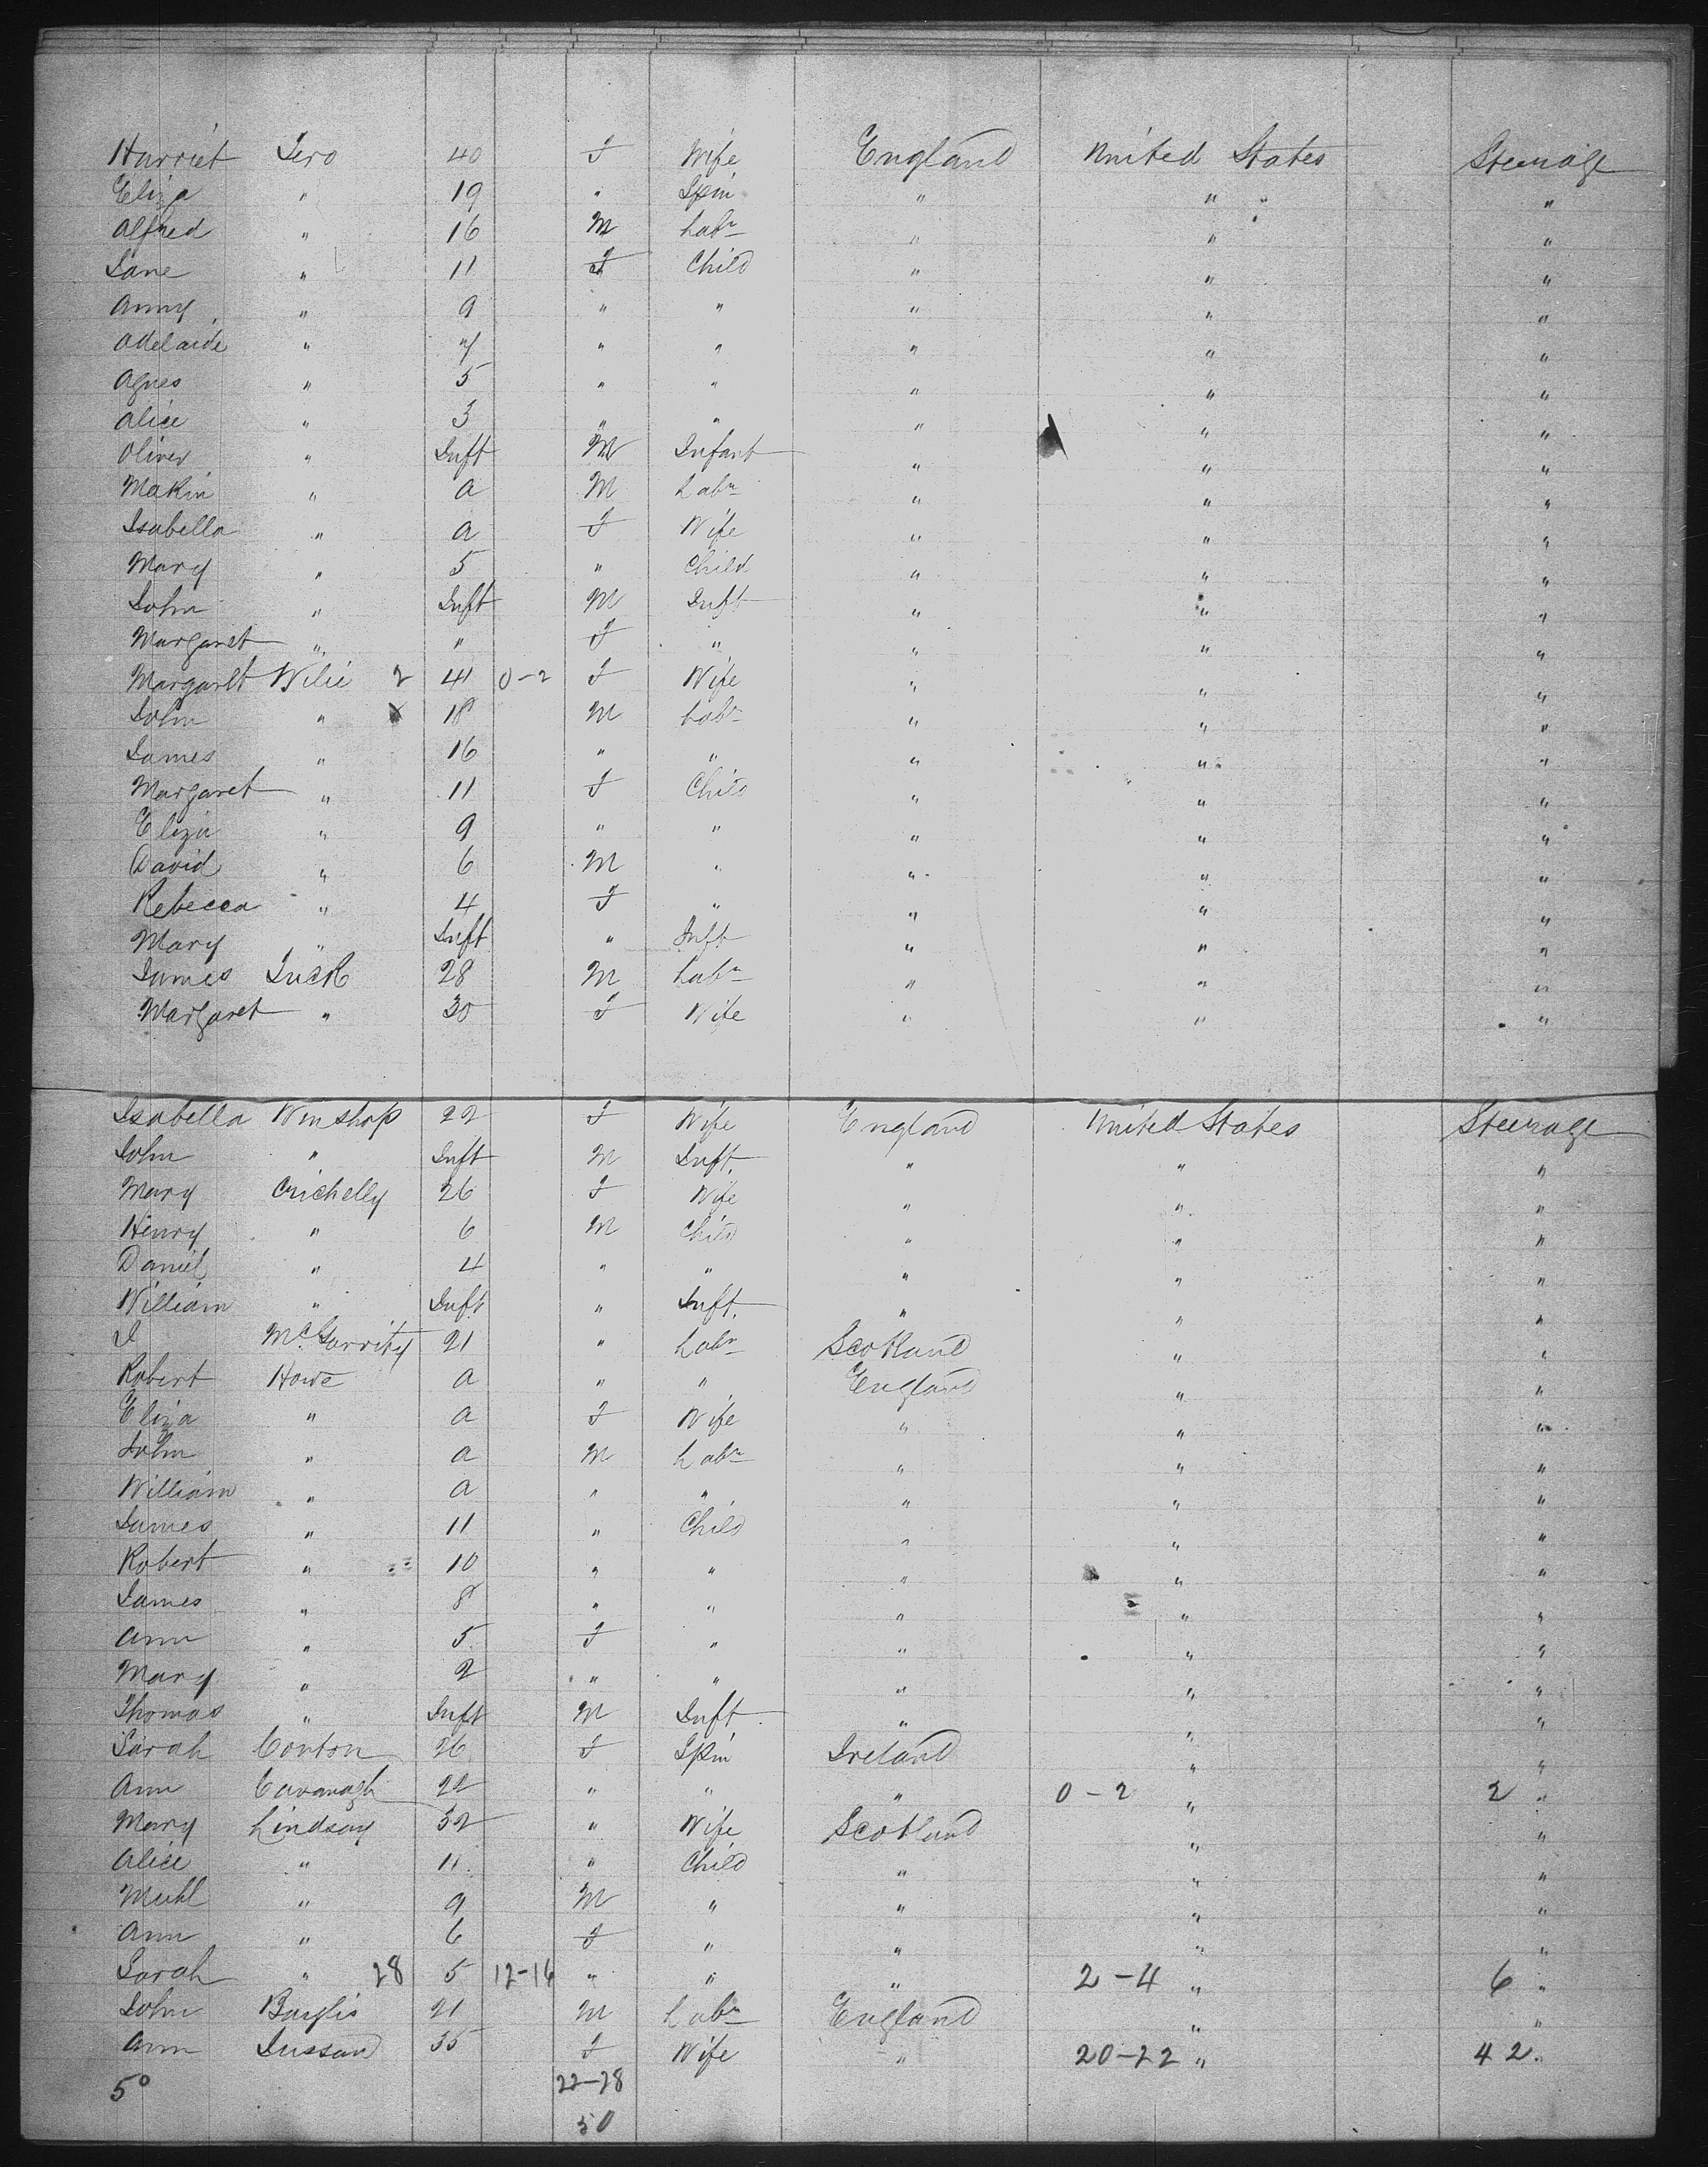 Harriet Sero 40 F Wife England United States Steerage
Eliza " 19 " Spin " " " "
Alfred " 16 M Labr " " "
Jane " 11 F Child " " "
Anny " 9 " " " " "
Adelaide " 7 " " " " "
Agnes " 5 " " " " "
Alice " 3 " " " " "
Oliver " Inft M Infant " " "
Makin " a M Labr " " "
Isabella " a F Wife " " "
Mary " 5 " Child " " "
John " Inft M Inft " " "
Margaret " " F " " " "
Margaret Wilie 2 41 0-2 F Wife " " "
John " x 18 M Labr " " "
James " 16 " " " " "
Margaret " 11 F Child " " "
Eliza " 9 " " " " "
David " 6 M " " " "
Rebecca " 4 F " " " "
Mary " Inft " Inft " " "
James 28 M Labr " " "
Margaret " 30 F Wife " " "
Isabella Winshop 22 F Wife England United States Steerage
John " Inft M Inft. " " "
Mary Crichelly 26 F Wife " " "
Henry " 6 M Child " " "
Daniel " 4 " " " " "
William " Inft " Inft. " " "
J McGarrity 21 " Labr Scotland " "
Robert Howe a " " England " "
Eliza " a F Wife " " "
John " a M Labr " " "
William " a " " " " "
James " 11 " Child " " "
Robert " 10 " " " " "
James " 8 " " " " "
Ann " 5 F " " " "
Mary " 2 " " " " "
Thomas " Inft M Inft " " "
Sarah Conton 26 F Spin Ireland " "
Ann Cavanagh 22 " " " 0-2 " 2 "
Mary Lindsay 32 " Wife Scotland " "
Alice " 11 " Child " " "
Michl " 9 M " " " "
Ann " 6 F " " " "
Sarah " 28 5 12-16 " " " 2-4 " 6 "
John 21 M Labr England " "
Ann 35 F Wife " 20-22 " 42 "
50 22-28
50